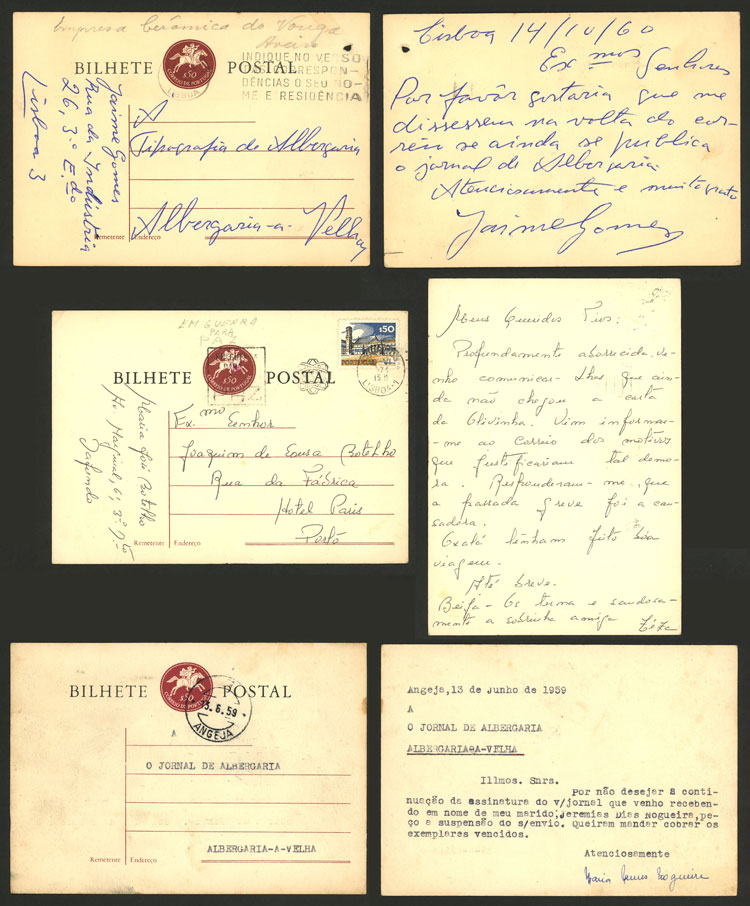 Empresa Cerâmica do Vouga
Aveiro
BILHETE POSTAL
$50
CORREIO DE PORTUGAL
LISBOA
INDIQUE NO VERSO
DAS CORRESPON-
DÊNCIAS O SEU NO-
ME E RESIDÊNCIA
Jaime Gomes
Rua da Indústria
26, 3.º E.do
Lisboa 3
A
Tipografia de Albergaria
Albergaria-a-Velha
Remetente
Endereço
Lisboa 14/10/60
Ex mos Senhores
Por favôr gostaria que me
dissessem na volta do cor-
reio se ainda se publica
o jornal de Albergaria.
Atenciosamente e muito grato
Jaime Gomes
EM GUERRA
PARA
PAZ
BILHETE POSTAL
$50
CORREIO DE PORTUGAL
$50
PORTUGAL
LISBOA
Maria José Botelho
6, 3.º
Dafundo
Ex.mo Senhor
Joaquim de Sousa Botelho
Rua da Fábrica
Hotel Paris
Porto
Remetente
Endereço
Meus Queridos Tios:
Profundamente aborrecida, ve-
nho comunicar-lhes que ain-
da não chegou a carta
da Olivinha. Vim informar-
-me ao Correio dos motivos
que justificariam tal demo-
ra. Responderam-me que
a passada greve foi a cau-
sadora.
Oxalá tenham feito boa
viagem.
Até breve.
Beija-os terna e saudosa-
mente a sobrinha amiga
BILHETE POSTAL
$50
CORREIO DE PORTUGAL
3.6.59
ANGEJA
A
O JORNAL DE ALBERGARIA
ALBERGARIA-A-VELHA
Remetente
Endereço
Angeja,13 de Junho de 1959
A
O JORNAL DE ALBERGARIA
ALBERGARIAªA-VELHA
Illmos. Snrs.
Por não desejar a conti-
nuação da assinatura do v/jornal que venho receben-
do em nome de meu marido,Jeremias Dias Nogueira,pe-
ço a suspensão do s/envio. Queiram mandar cobrar os
exemplares vencidos.
Atenciosamente
Maria Nunes Nogueira